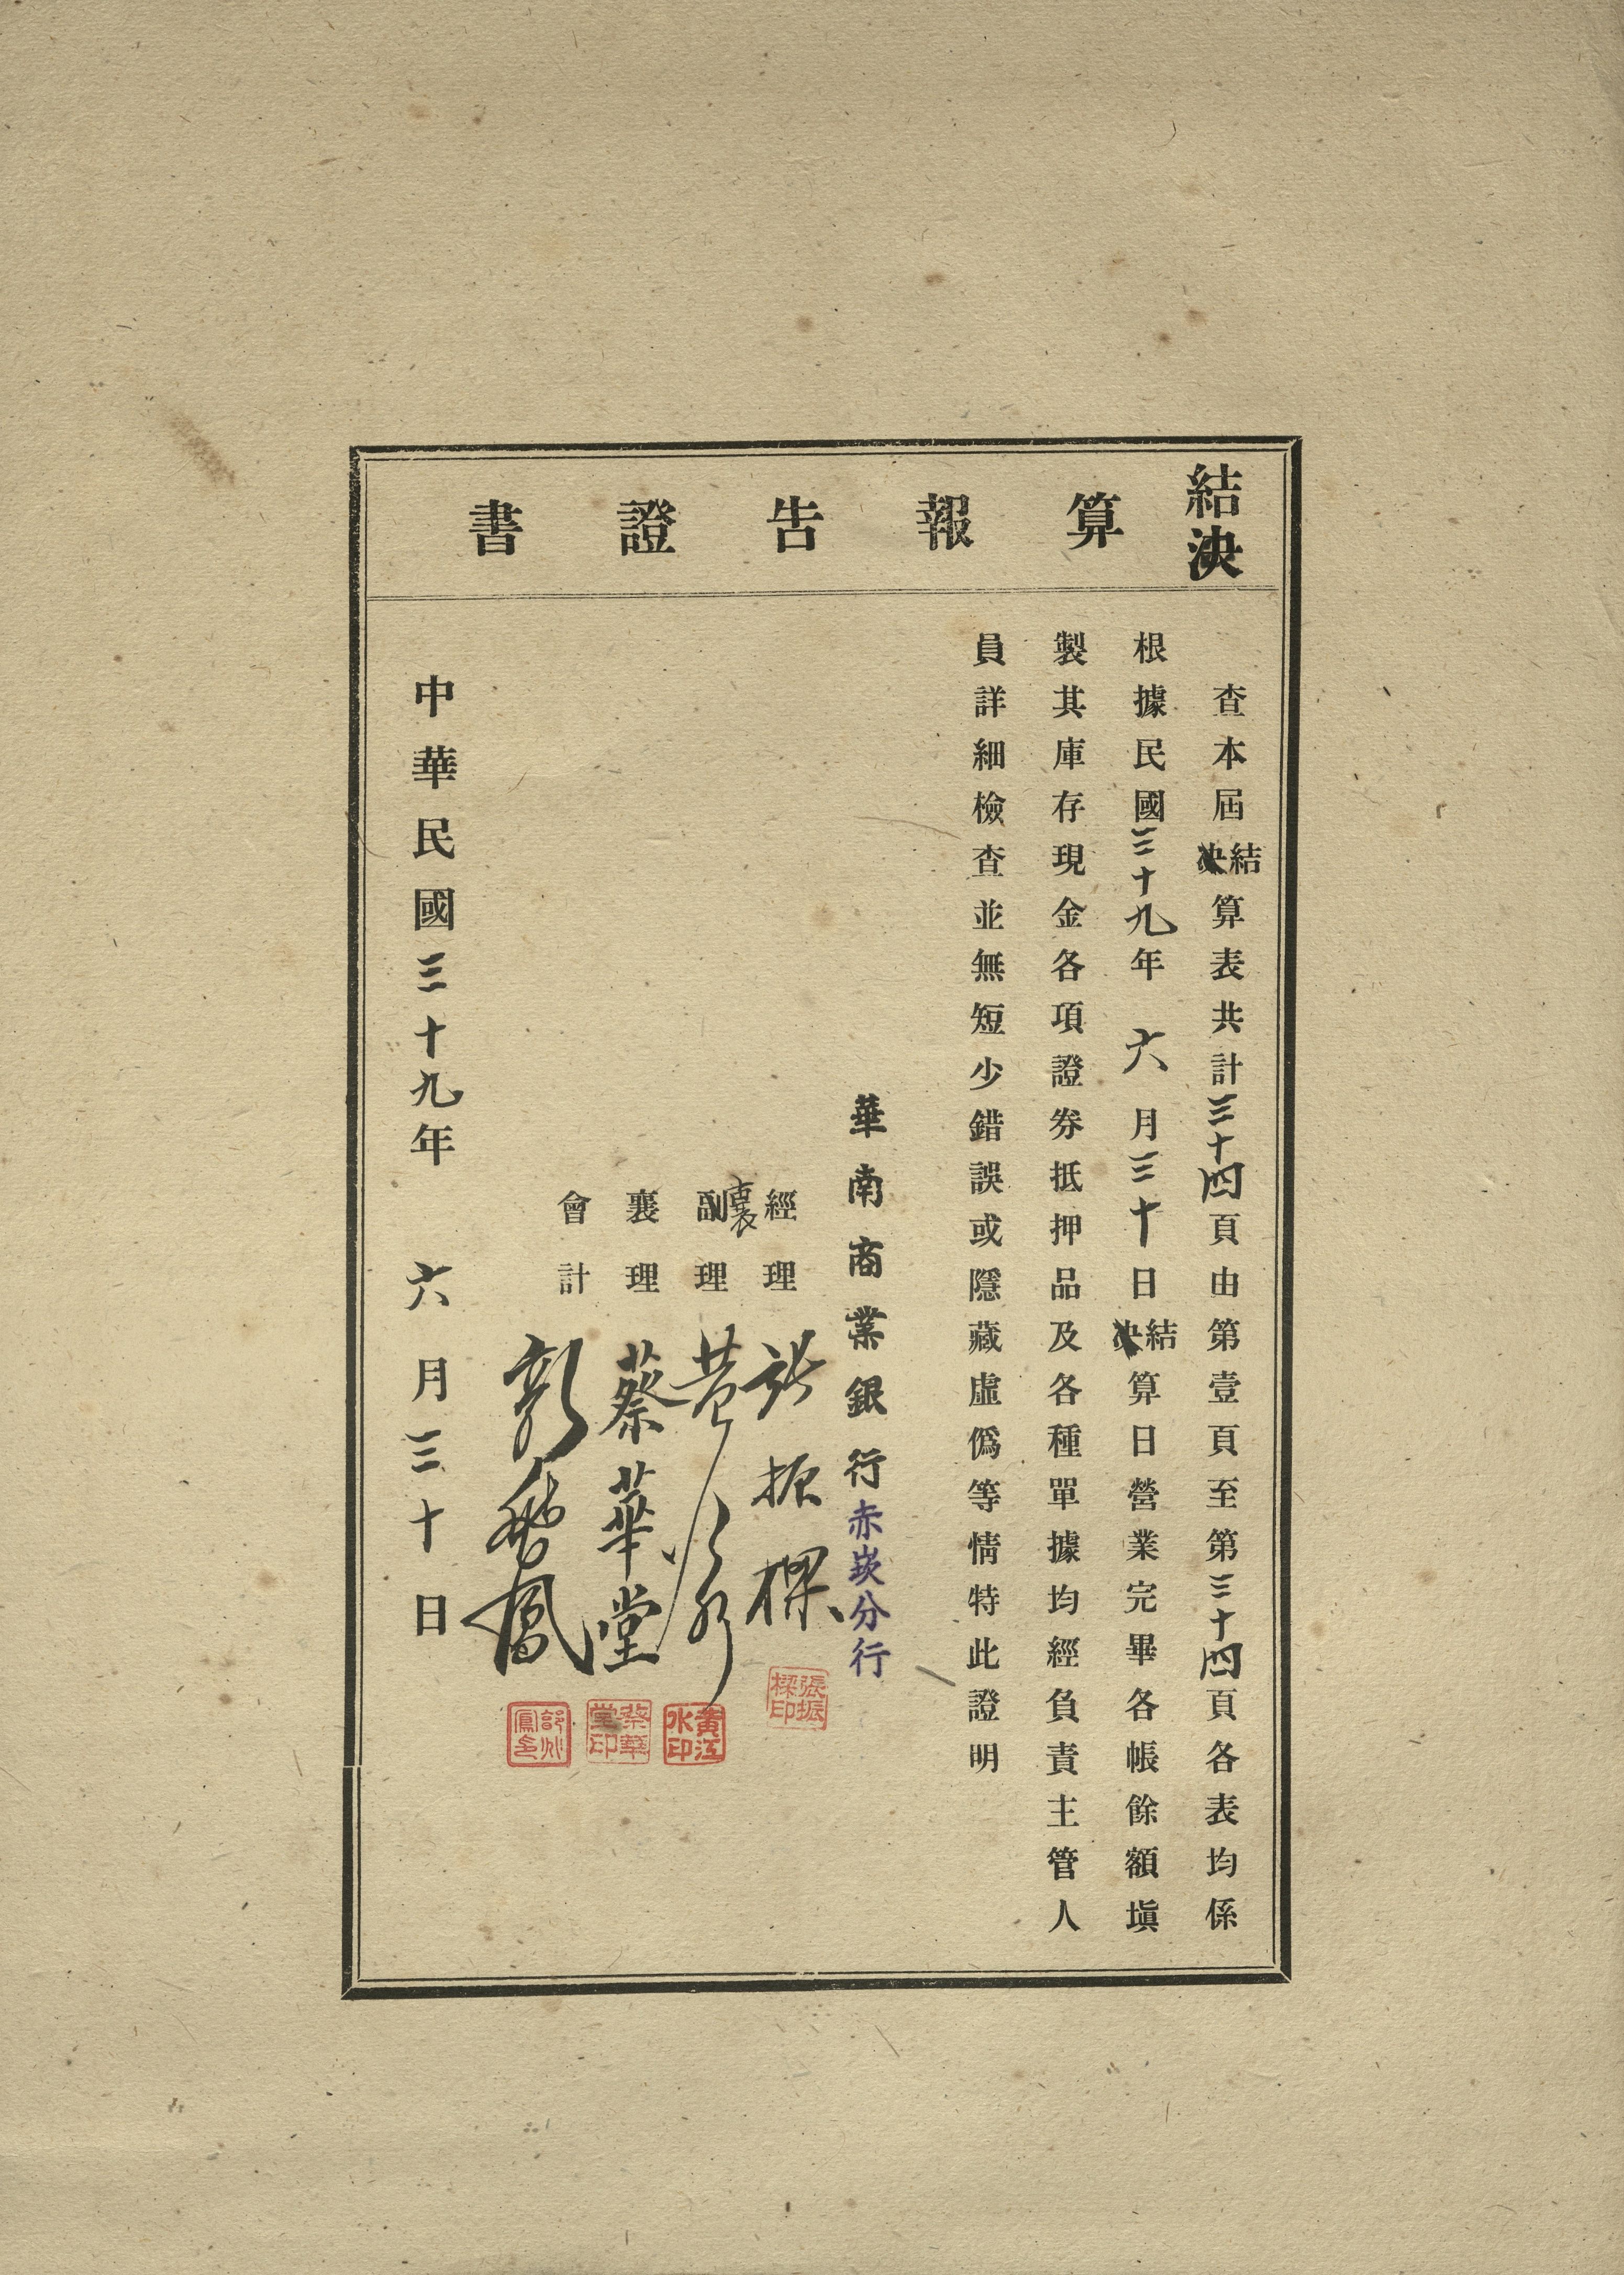 結決算報告證書
查本屆結決算表共計三十四頁由第壹頁至第三十四頁各表均係
根據民國三十九年六月三十日結決算日營業完畢各帳餘額塡
製其庫存現金各項證券抵押品及各種單據均經負責主管人
員詳細檢查並無短少錯誤或隱藏虛僞等情特此證明
華南商業銀行赤崁分行
經理 張振樑
張振樑印
襄副理 黃江水
黃江水印
襄理 蔡華堂
蔡華堂印
會計 鳳
中華民國三十九年六月三十日